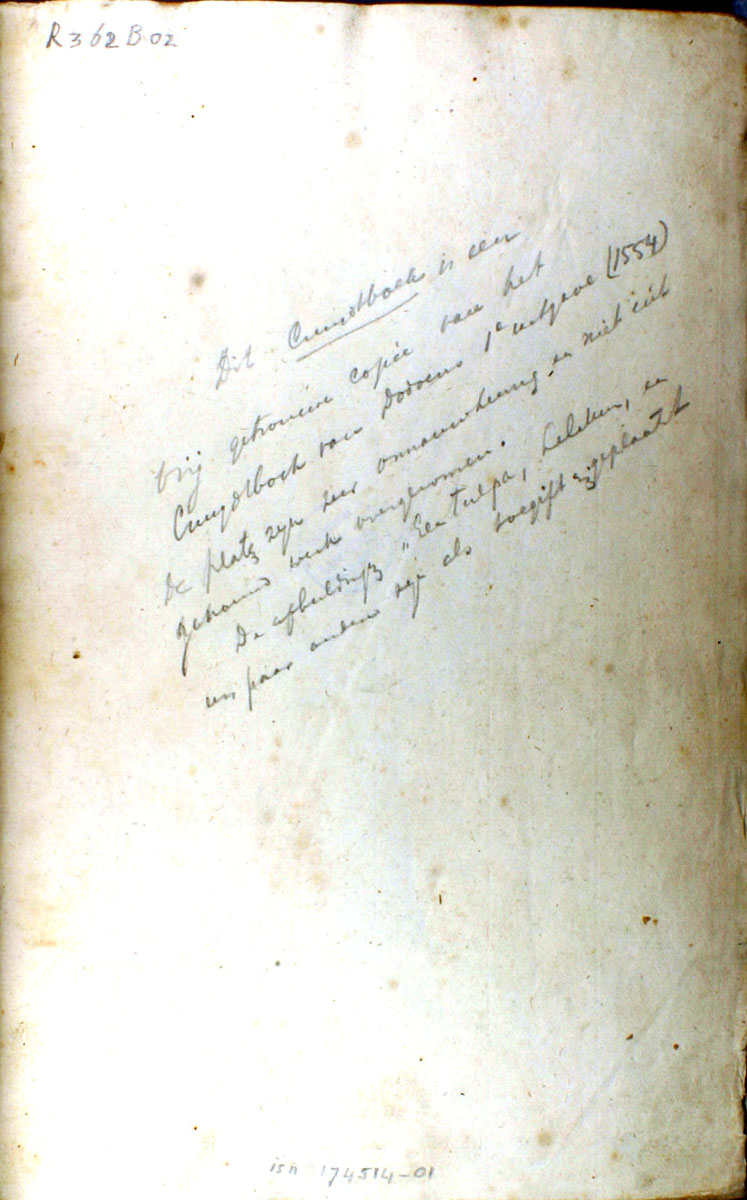 R362B02
Dit Cruydtboek is een
vrij getrouwe copie van het
Cruydtboek van Dodoens 1e uitgave (1554)
De platen zijn zeer onnauwkeurig en niet uit
genoemd werk overgenomen.
De afbeeldingen "Een tulpa, Lelieken, en
een paar andere zijn als toegift bijgeplaatst
isn 174514-01